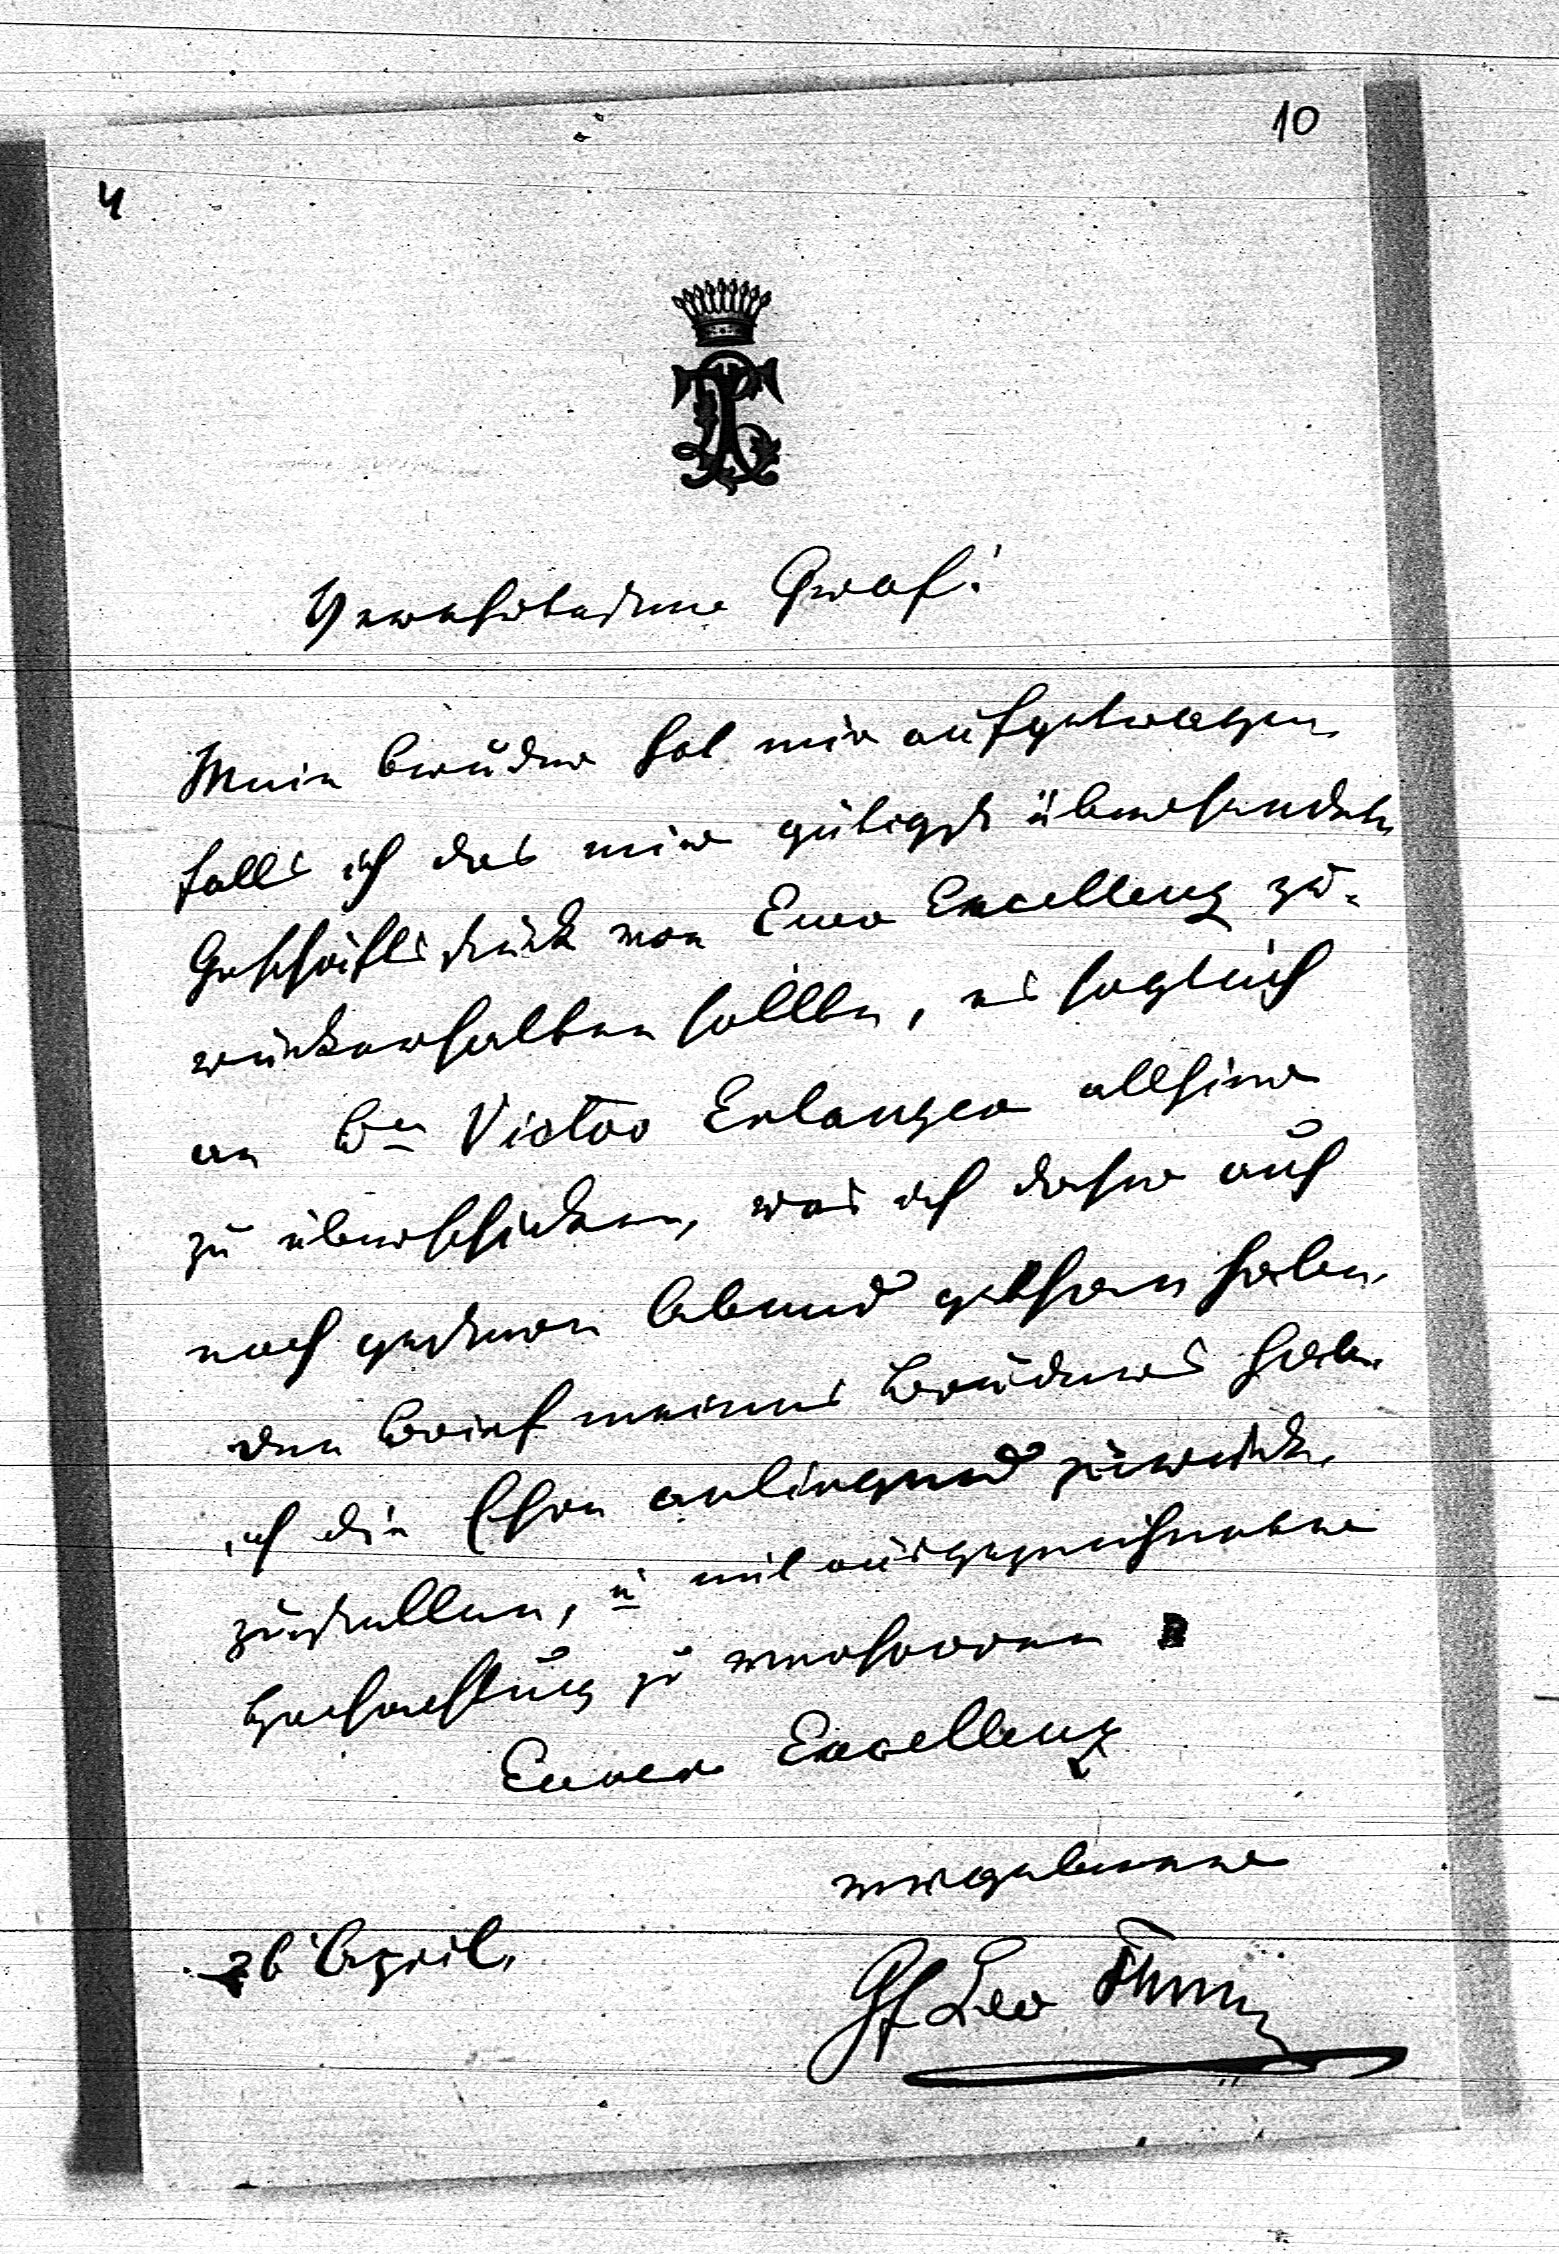 10
4
Verehrtester Graf!
Mein Bruder hat mir aufgetragen,
falls ich das mir gütigst übersendete
Geschäftsstück von Euer Excellenz zu-
rückerhalten sollte, es sogleich
an Bon Victor Erlanger allhier
zu überschicken, was ich daher auch
noch gestern Abend gethan habe.
den Brief meines Bruders habe
ich die Ehre anliegend zurück
zustellen, u mit ausgezeichneter
Hochachtung zu verharren
Euerer Excellenz
ergebener
26 April.
Gf Leo Thun